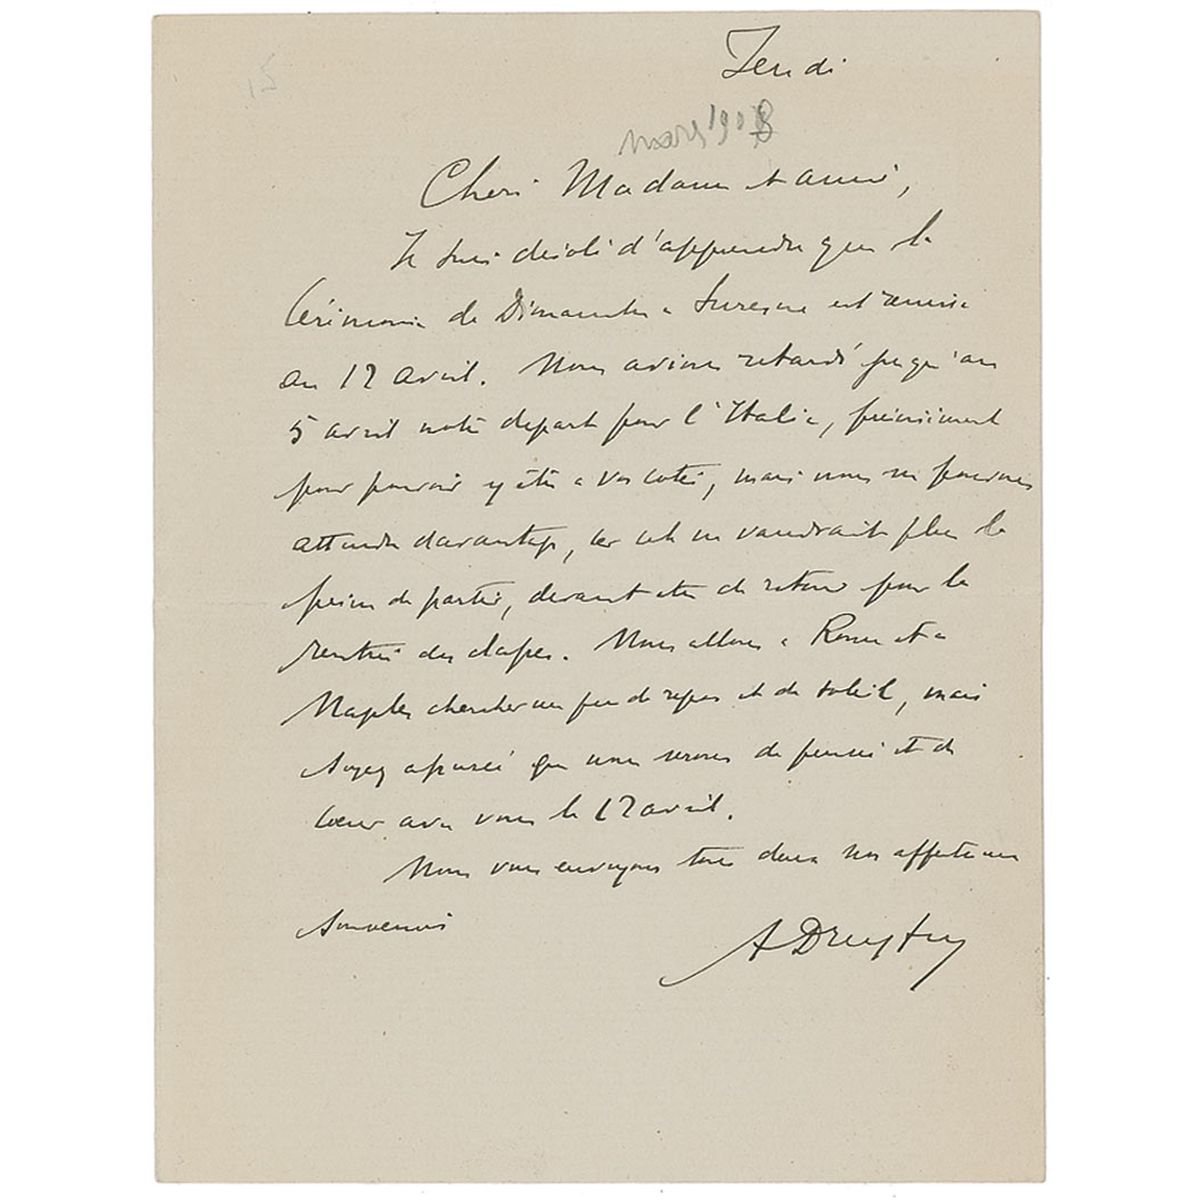 15
Jeudi
mars 1908
Chère Madame et amie,
Je suis désolé d'apprendre que la
Cérémonie de Dimanche à Suresne est remise
au 12 avril. Nous avions retardé jusqu'au
5 avril notre départ pour l'Italie, précisément
pour pouvoir y être à vos côtés, mais nous ne pouvons
attendre davantage, car cela ne vaudrait plus la
peine de partir, devant être de retour pour la
rentrée des classes. Nous allons à Rome et à
Naples chercher un peu de repos et de soleil, mais
soyez assurée que nous serons de pensée et de
cœur avec vous le 12 avril.
Nous vous envoyons tous deux nos affectueux
souvenirs
A Dreyfus